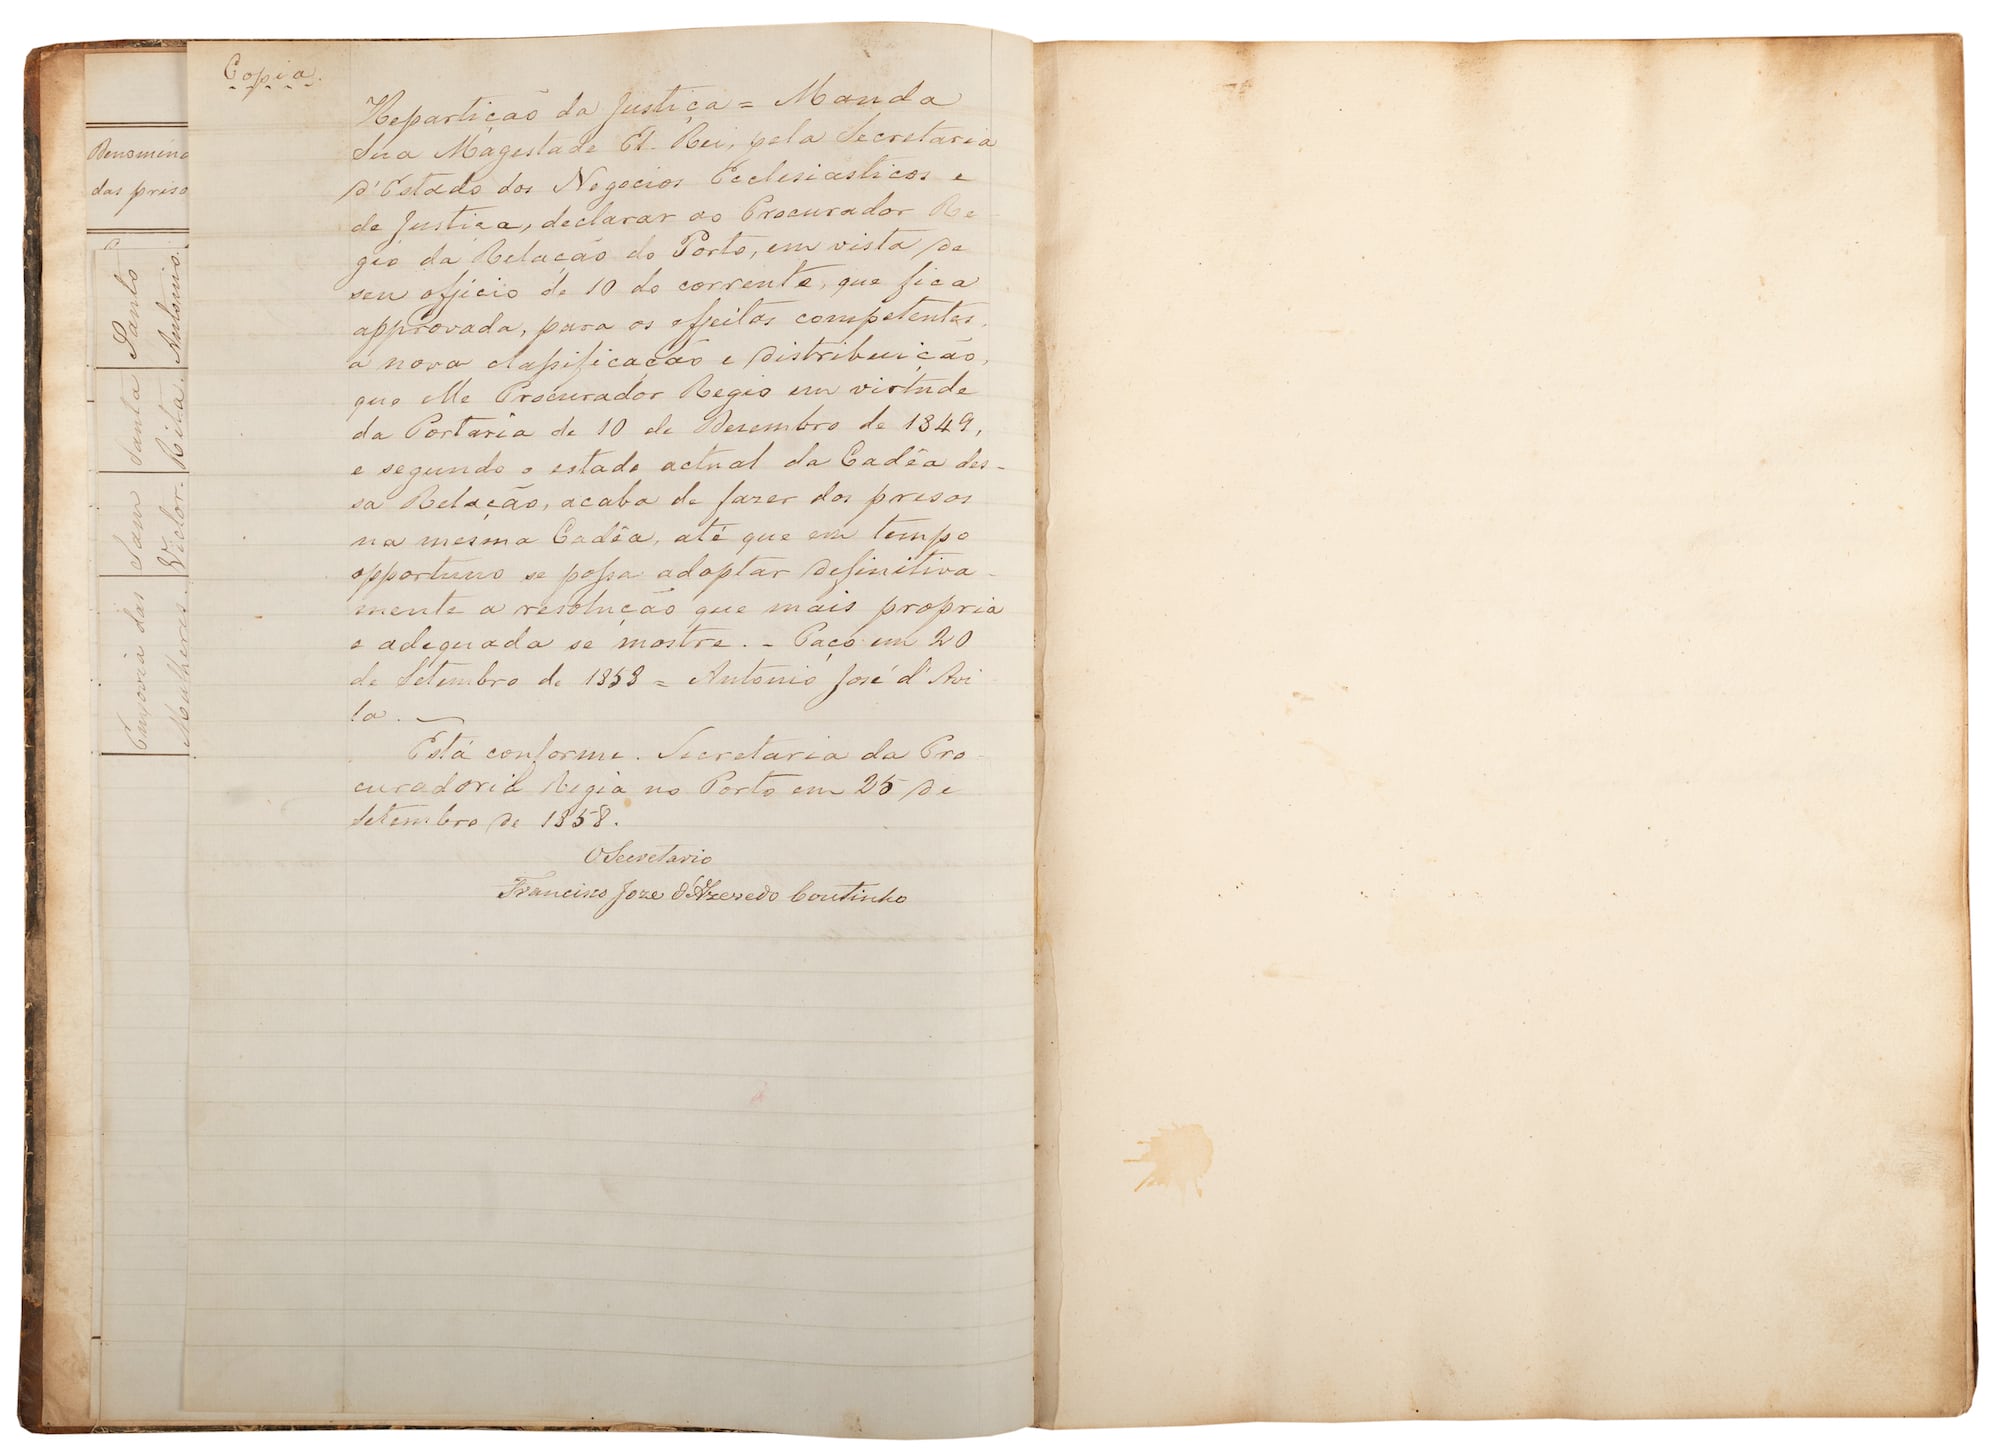 Copia.
Repartição da Justiça = Manda
Sua Magestade El-Rei, pela Secretaria
d'Estado dos Negocios Ecclesiasticos e
de Justiça, declarar ao Procurador Re-
gio da Relação do Porto, em vista de
seu officio de 10 do corrente, que fica
approvada, para os effeitos competentes,
a nova classificação e distribuição,
que elle Procurador Regio em virtude
da Portaria de 10 de Desembro de 1849,
e segundo o estado actual da Cadêa des-
sa Relação, acaba de fazer dos presos
na mesma Cadêa, até que em tempo
opportuno se possa adoptar definitiva-
mente a resolução que mais propria
e adequada se mostre. - Paço em 20
de Setembro de 1858 = Antonio José d'Avi-
la.
Está conforme. Secretaria da Pro-
curadoria Regia no Porto em 25 de
Setembro de 1858.
O Secretario
Francisco Joze d'Azevedo Coutinho
Denomina
das priso
Santo
Antonio.
Santa
Rita.
Sam
Victor.
Enxovia das
Mulheres.